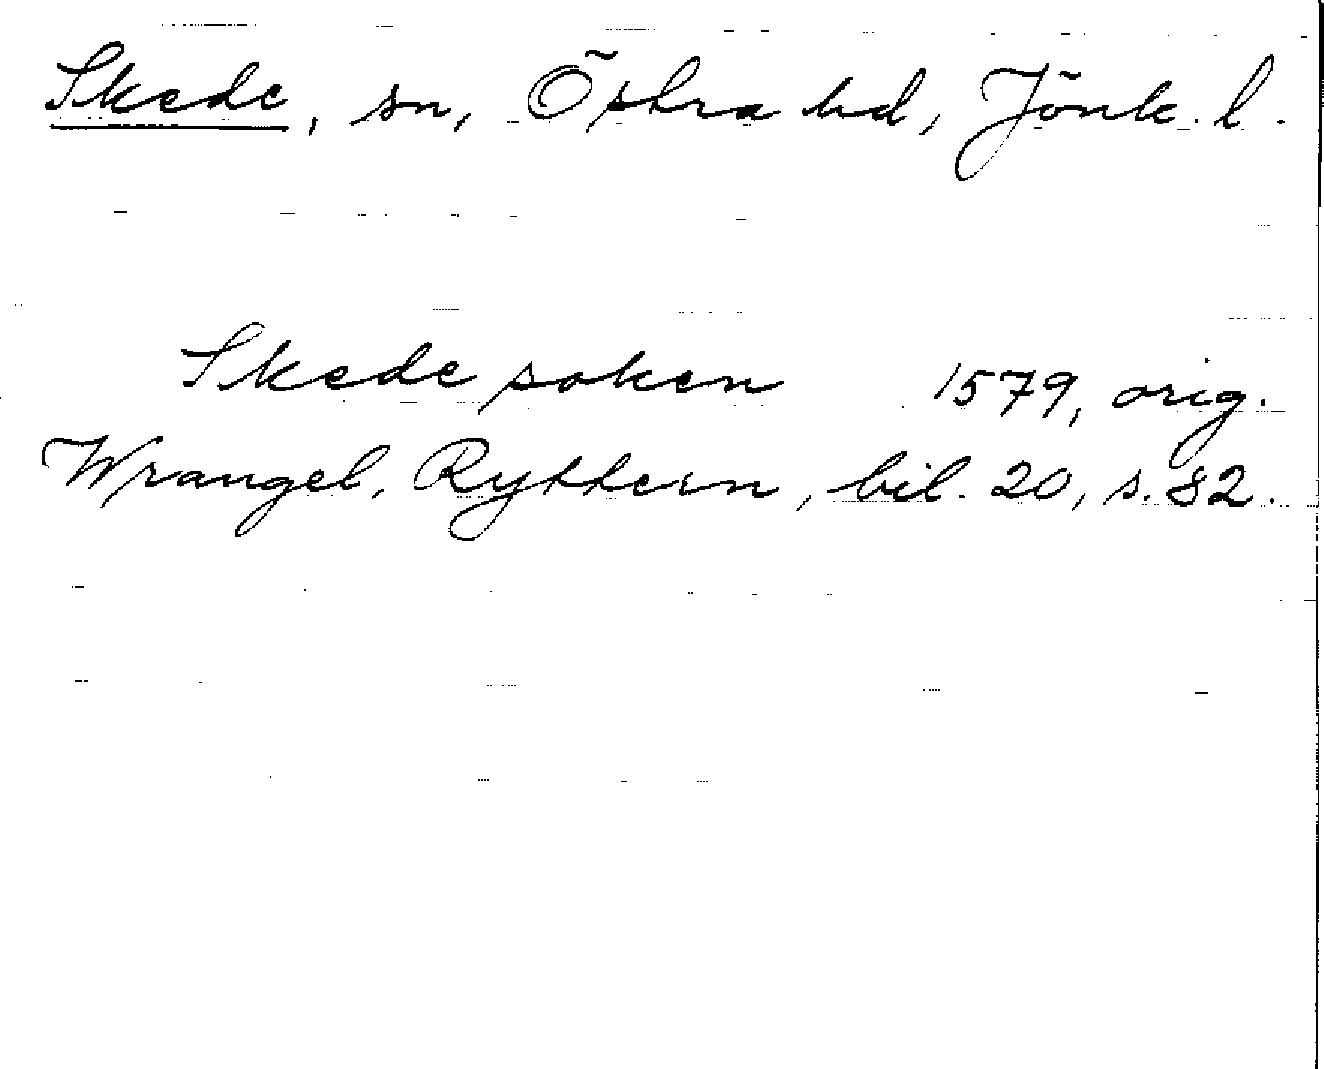 Skede, sn, Östra hd, Jönk. l.
Skede soken 1579, orig.
Wrangel, Ryttern, bil. 20, s. 82.